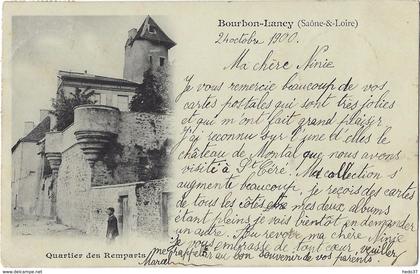 Bourbon-Lancy (Saône-&-Loire)
24 octobre 1900.
Ma chère Ninie
Je vous remercie beaucoup de vos
cartes postales qui sont très jolies
et qui m'ont fait grand plaisir
J'ai reconnu sur l'une d'elles le
château de Montal que nous avons
visité à St Céré. Ma collection s'
augmente beaucoup, je reçois des cartes
de tous les côtés mes deux albums
étant pleins je vais bientôt en demander
un autre. Au revoir ma chère Ninie
je vous embrasse de tout cœur, veuillez
me rappeler au bon souvenir de vos parents
Marcel
Quartier des Remparts